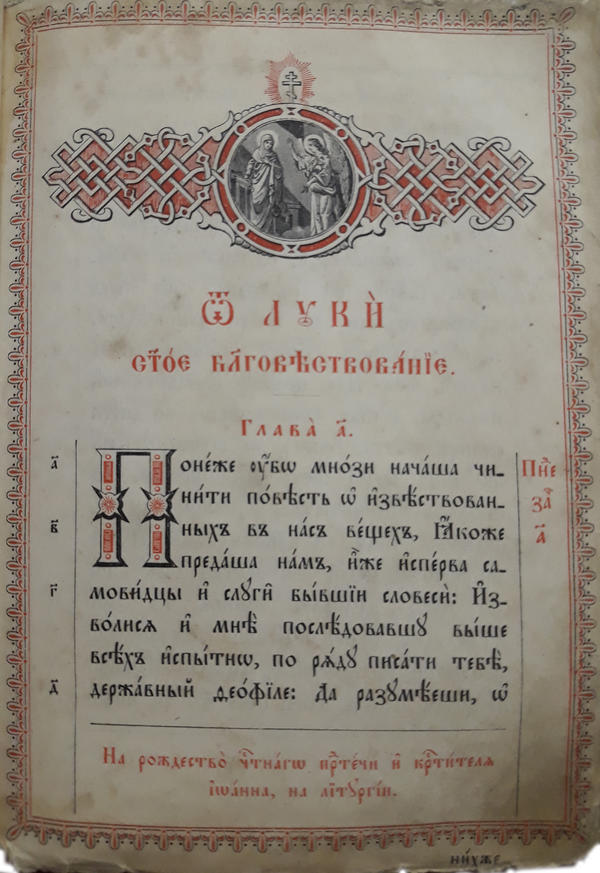 Ѿ ЛꙊКѝ
ст҃о́е бл҃говѣствова́нїе.
Глава̀ а҃.
а҃
Поне́же ᲂу҆́бѡ мно́зи нача́ша чи-
ни́ти по́вѣсть ѡ҆ и҆звѣ́ствован-
в҃
ныхъ въ на́съ ве́щехъ, ꙗ҆́коже
преда́ша на́мъ, и҆̀же и҆спе́рва са-
г҃
мови́дцы и҆ слꙋги̑ бы́вшїи словесѐ: И҆з-
во́лисѧ и҆ мнѣ̀ послѣ́довавшꙋ вы́ше
всѣ̑хъ и҆спы́тнѡ, по рѧ́дꙋ писа́ти тебѣ̀,
д҃
держа́вный ѳео́фїле: Да разꙋмѣ́еши, ѡ҆
Пн҇е
за҇
а҃
На рождество̀ чⷭ҇тна́гѡ прⷣте́чи и҆ крⷭ҇ти́телѧ
і҆ѡа́нна, на лїтꙋргі́и.
ни́хже